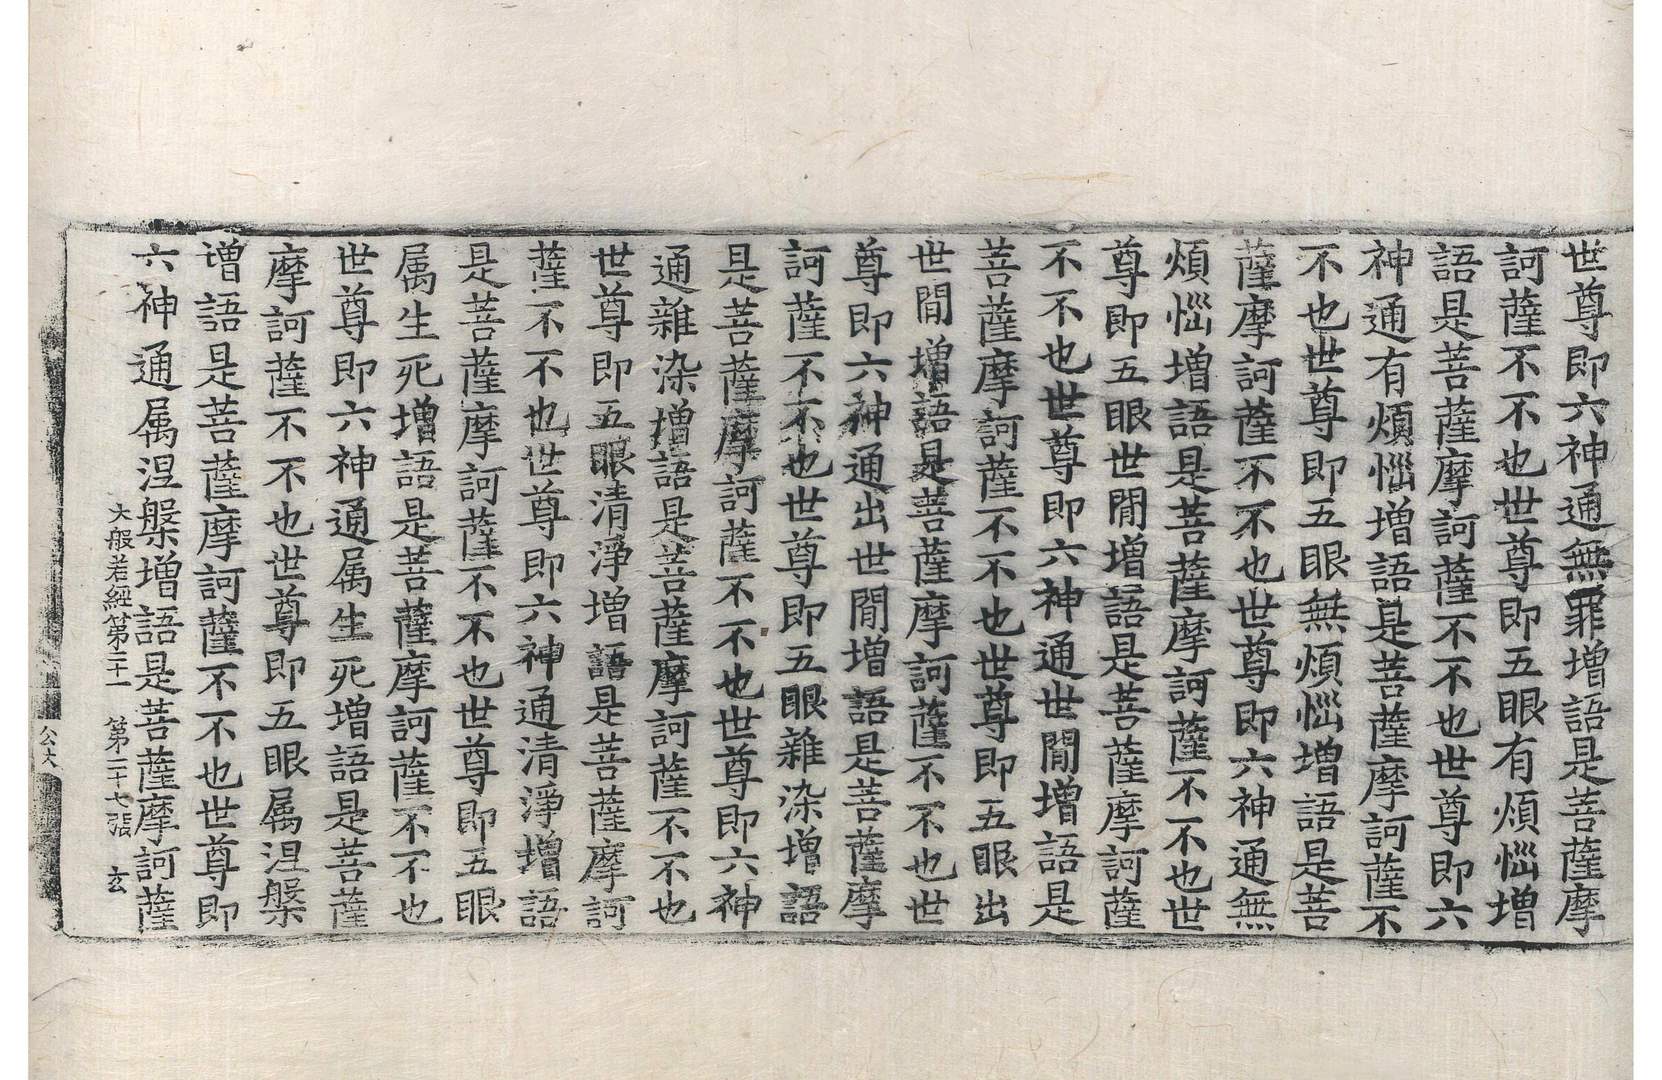 世尊即六神通無罪增語是菩薩摩
訶薩不不也世尊即五眼有煩惱增
語是菩薩摩訶薩不不也世尊即六
神通有煩惱增語是菩薩摩訶薩不
不也世尊即五眼無煩惱增語是菩
薩摩訶薩不不也世尊即六神通無
煩惱增語是菩薩摩訶薩不不也世
尊即五眼世閒增語是菩薩摩訶薩
不不也世尊即六神通世閒增語是
菩薩摩訶薩不不也世尊即五眼出
世閒增語是菩薩摩訶薩不不也世
尊即六神通出世閒增語是菩薩摩
訶薩不不也世尊即五眼雜染增語
是菩薩摩訶薩不不也世尊即六神
通雜染增語是菩薩摩訶薩不不也
世尊即五眼清淨增語是菩薩摩訶
薩不不也世尊即六神通清淨增語
是菩薩摩訶薩不不也世尊即五眼
属生死增語是菩薩摩訶薩不不也
世尊即六神通属生死增語是菩薩
摩訶薩不不也世尊即五眼属涅槃
增語是菩薩摩訶薩不不也世尊即
六神通属涅槃增語是菩薩摩訶薩
大般若經第二十一 第二十七張 玄
公大